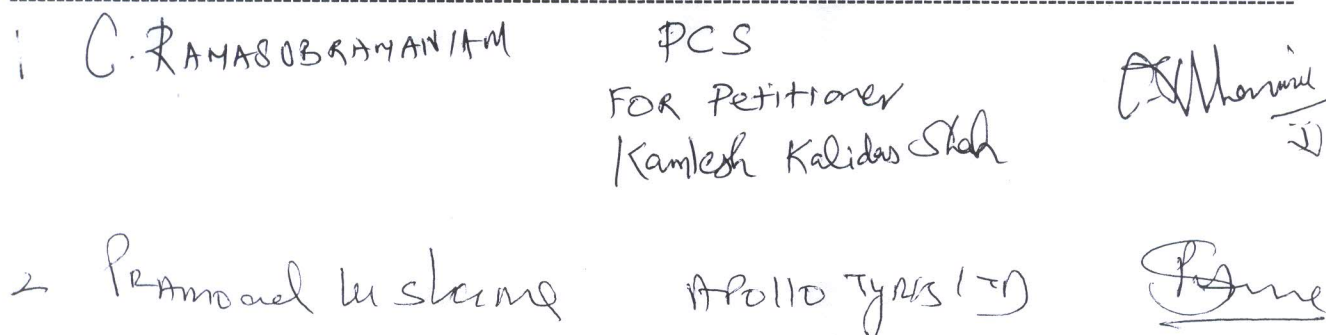 1 C. RAMASUBRAMANIAM PCS
FOR Petitioner
Kamlesh Kalidas Shah
2 PRAMOD Sharma APOLLO TYRES LTD